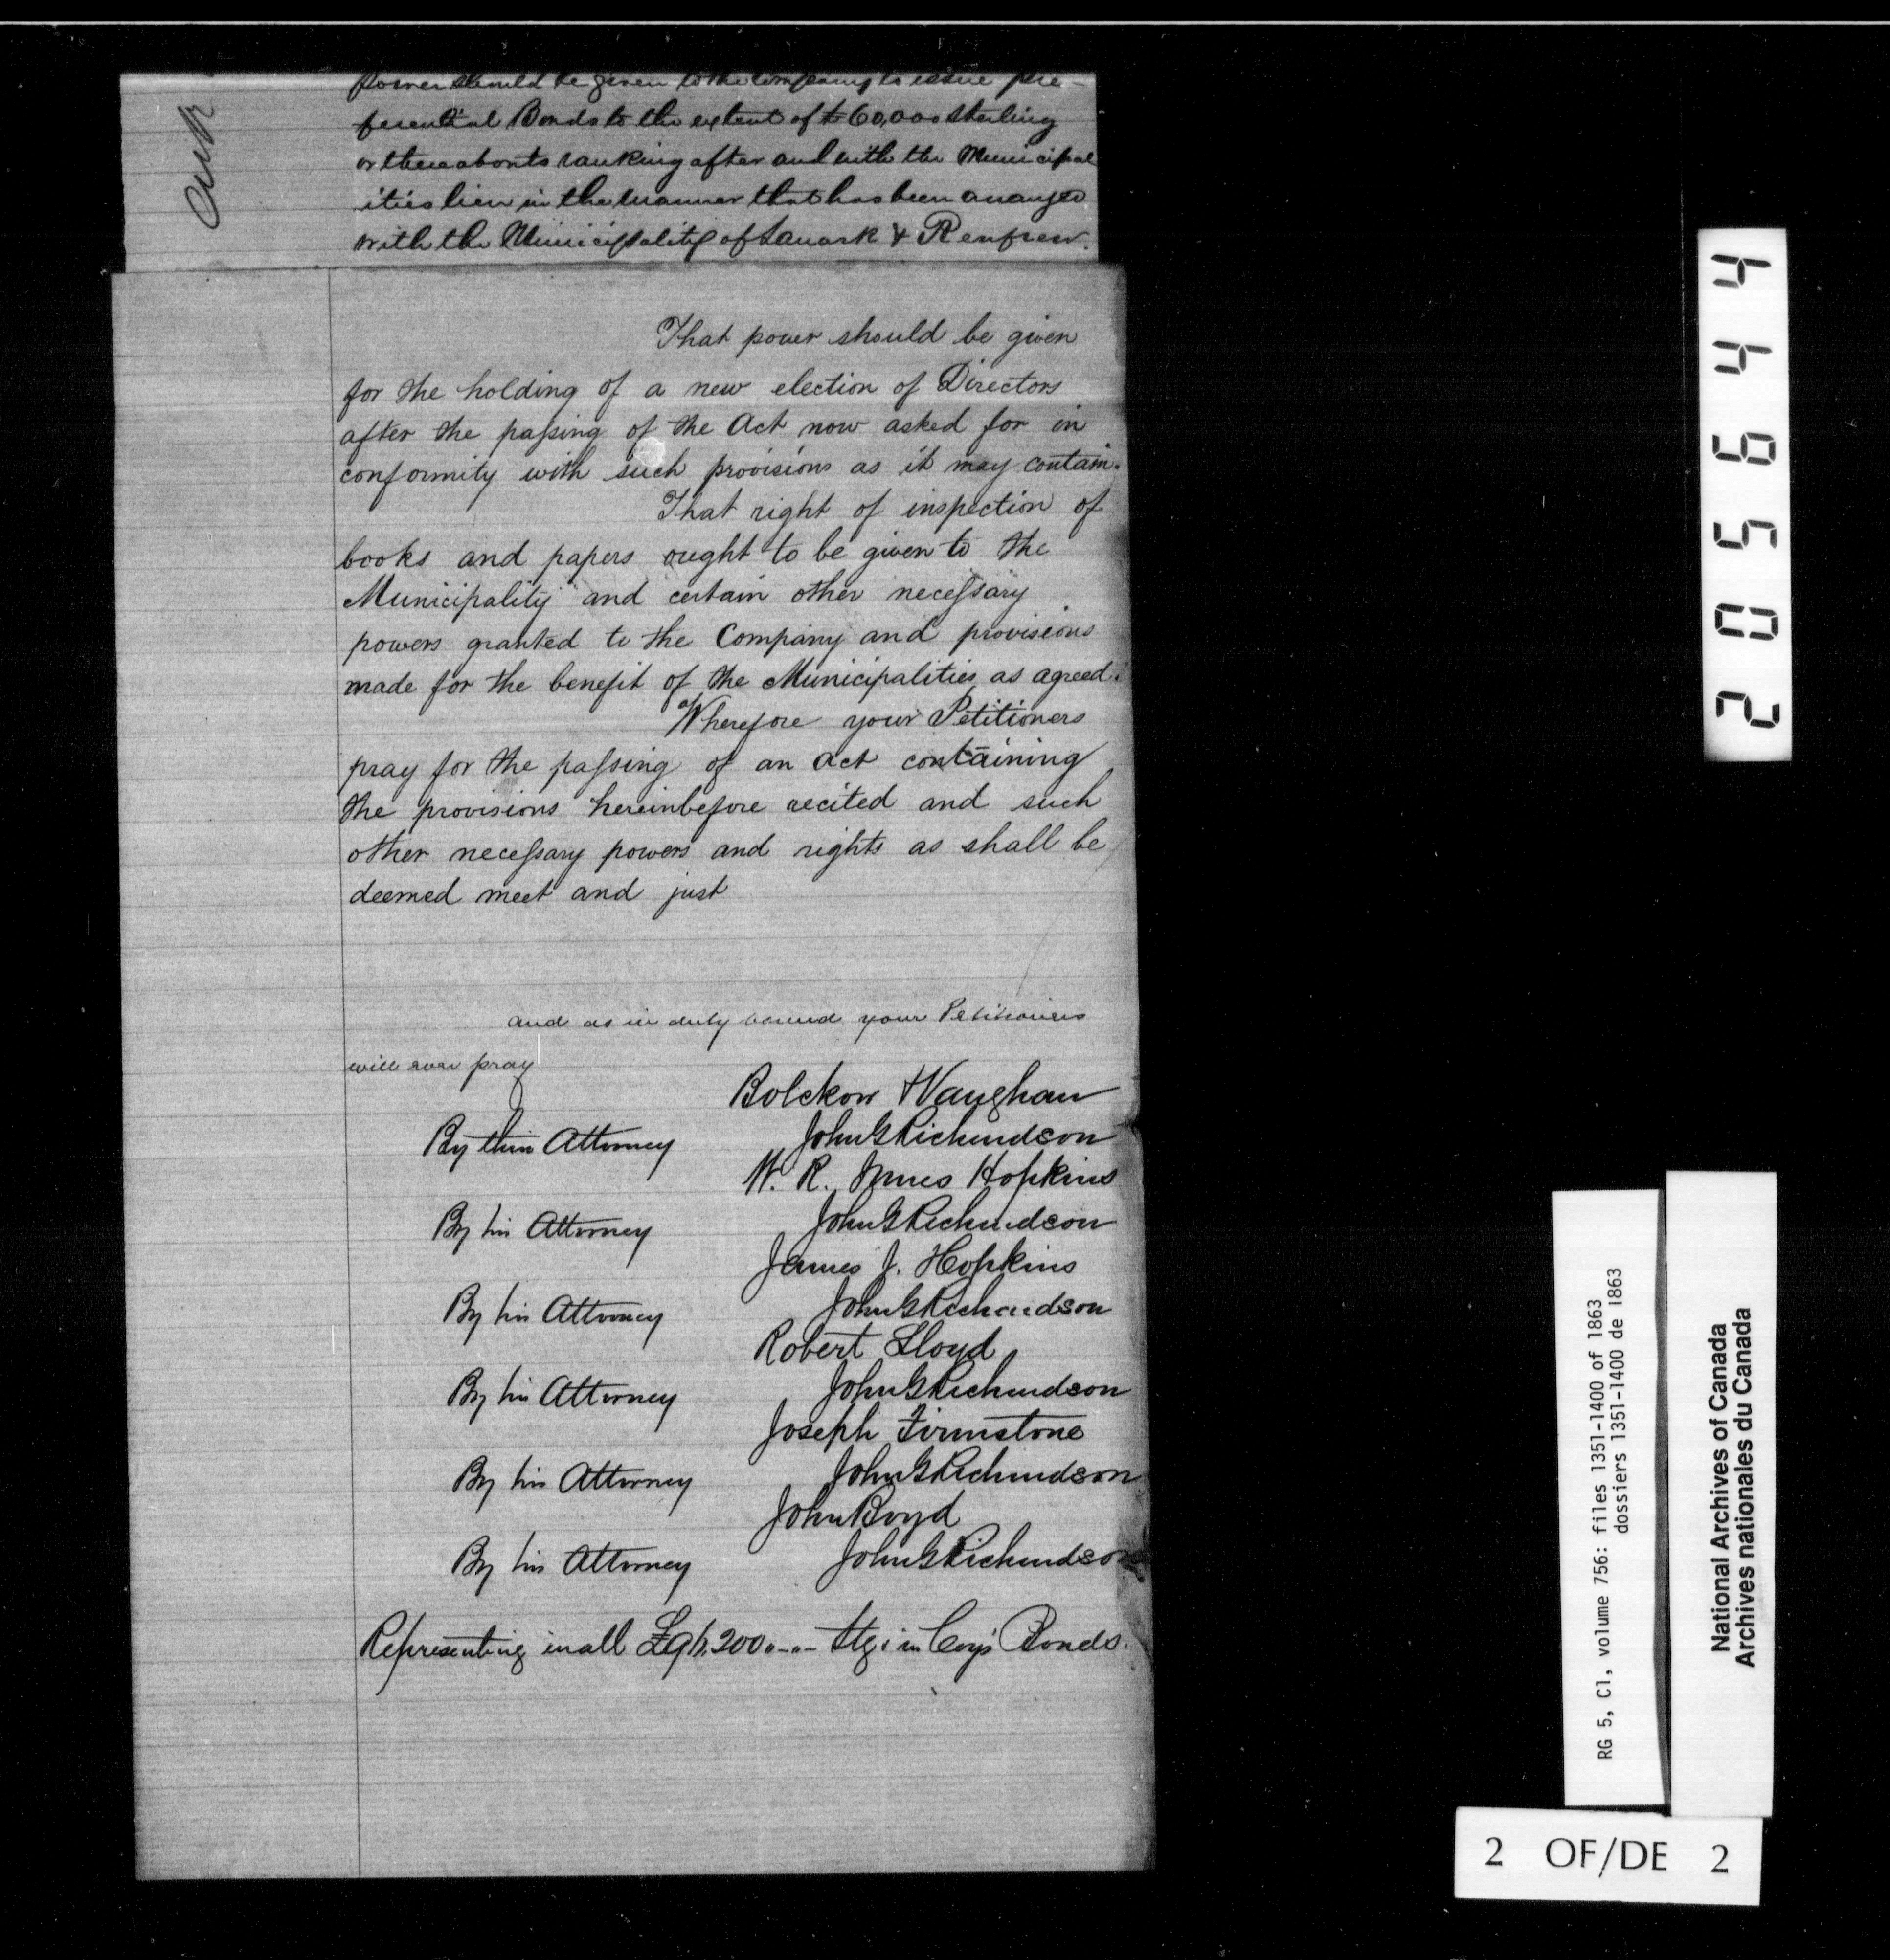 power should be given to the Company to issue pre-
ferential Bonds to the extent of £60,000 sterling
or thereabouts ranking after and with the Municipal
ities lien in the manner that has been arranged
with the Municipality of Lanark & Renfrew.
That power should be given
for the holding of a new election of Directors
after the passing of the Act now asked for in
conformity with such provisions as it may contain.
That right of inspection of
books and papers ought to be given to the
Municipality and certain other necessary
powers granted to the Company and provisions
made for the benefit of the Municipalities as agreed.
Wherefore your Petitioners
pray for the passing of an act containing
the provisions hereinbefore recited and such
other necessary powers and rights as shall be
deemed meet and just
and as in duty bound your Petitioners
will ever pray
Bolckow & Vaughan
By their Attorney John G Richardson
W. R. Innes Hopkins
By his Attorney John G Richardson
James J. Hopkins
By his Attorney John G Richardson
Robert Lloyd
By his Attorney John G Richardson
Joseph Firmstone
By his Attorney John G Richardson
John Boyd
By his Attorney John G Richardson
Representing in all Stg. in Coy's Bonds.
205644
RG 5, C1, volume 756: files 1351-1400 of 1863
dossiers 1351-1400 de 1863
National Archives of Canada
Archives nationales du Canada
2 OF/DE 2